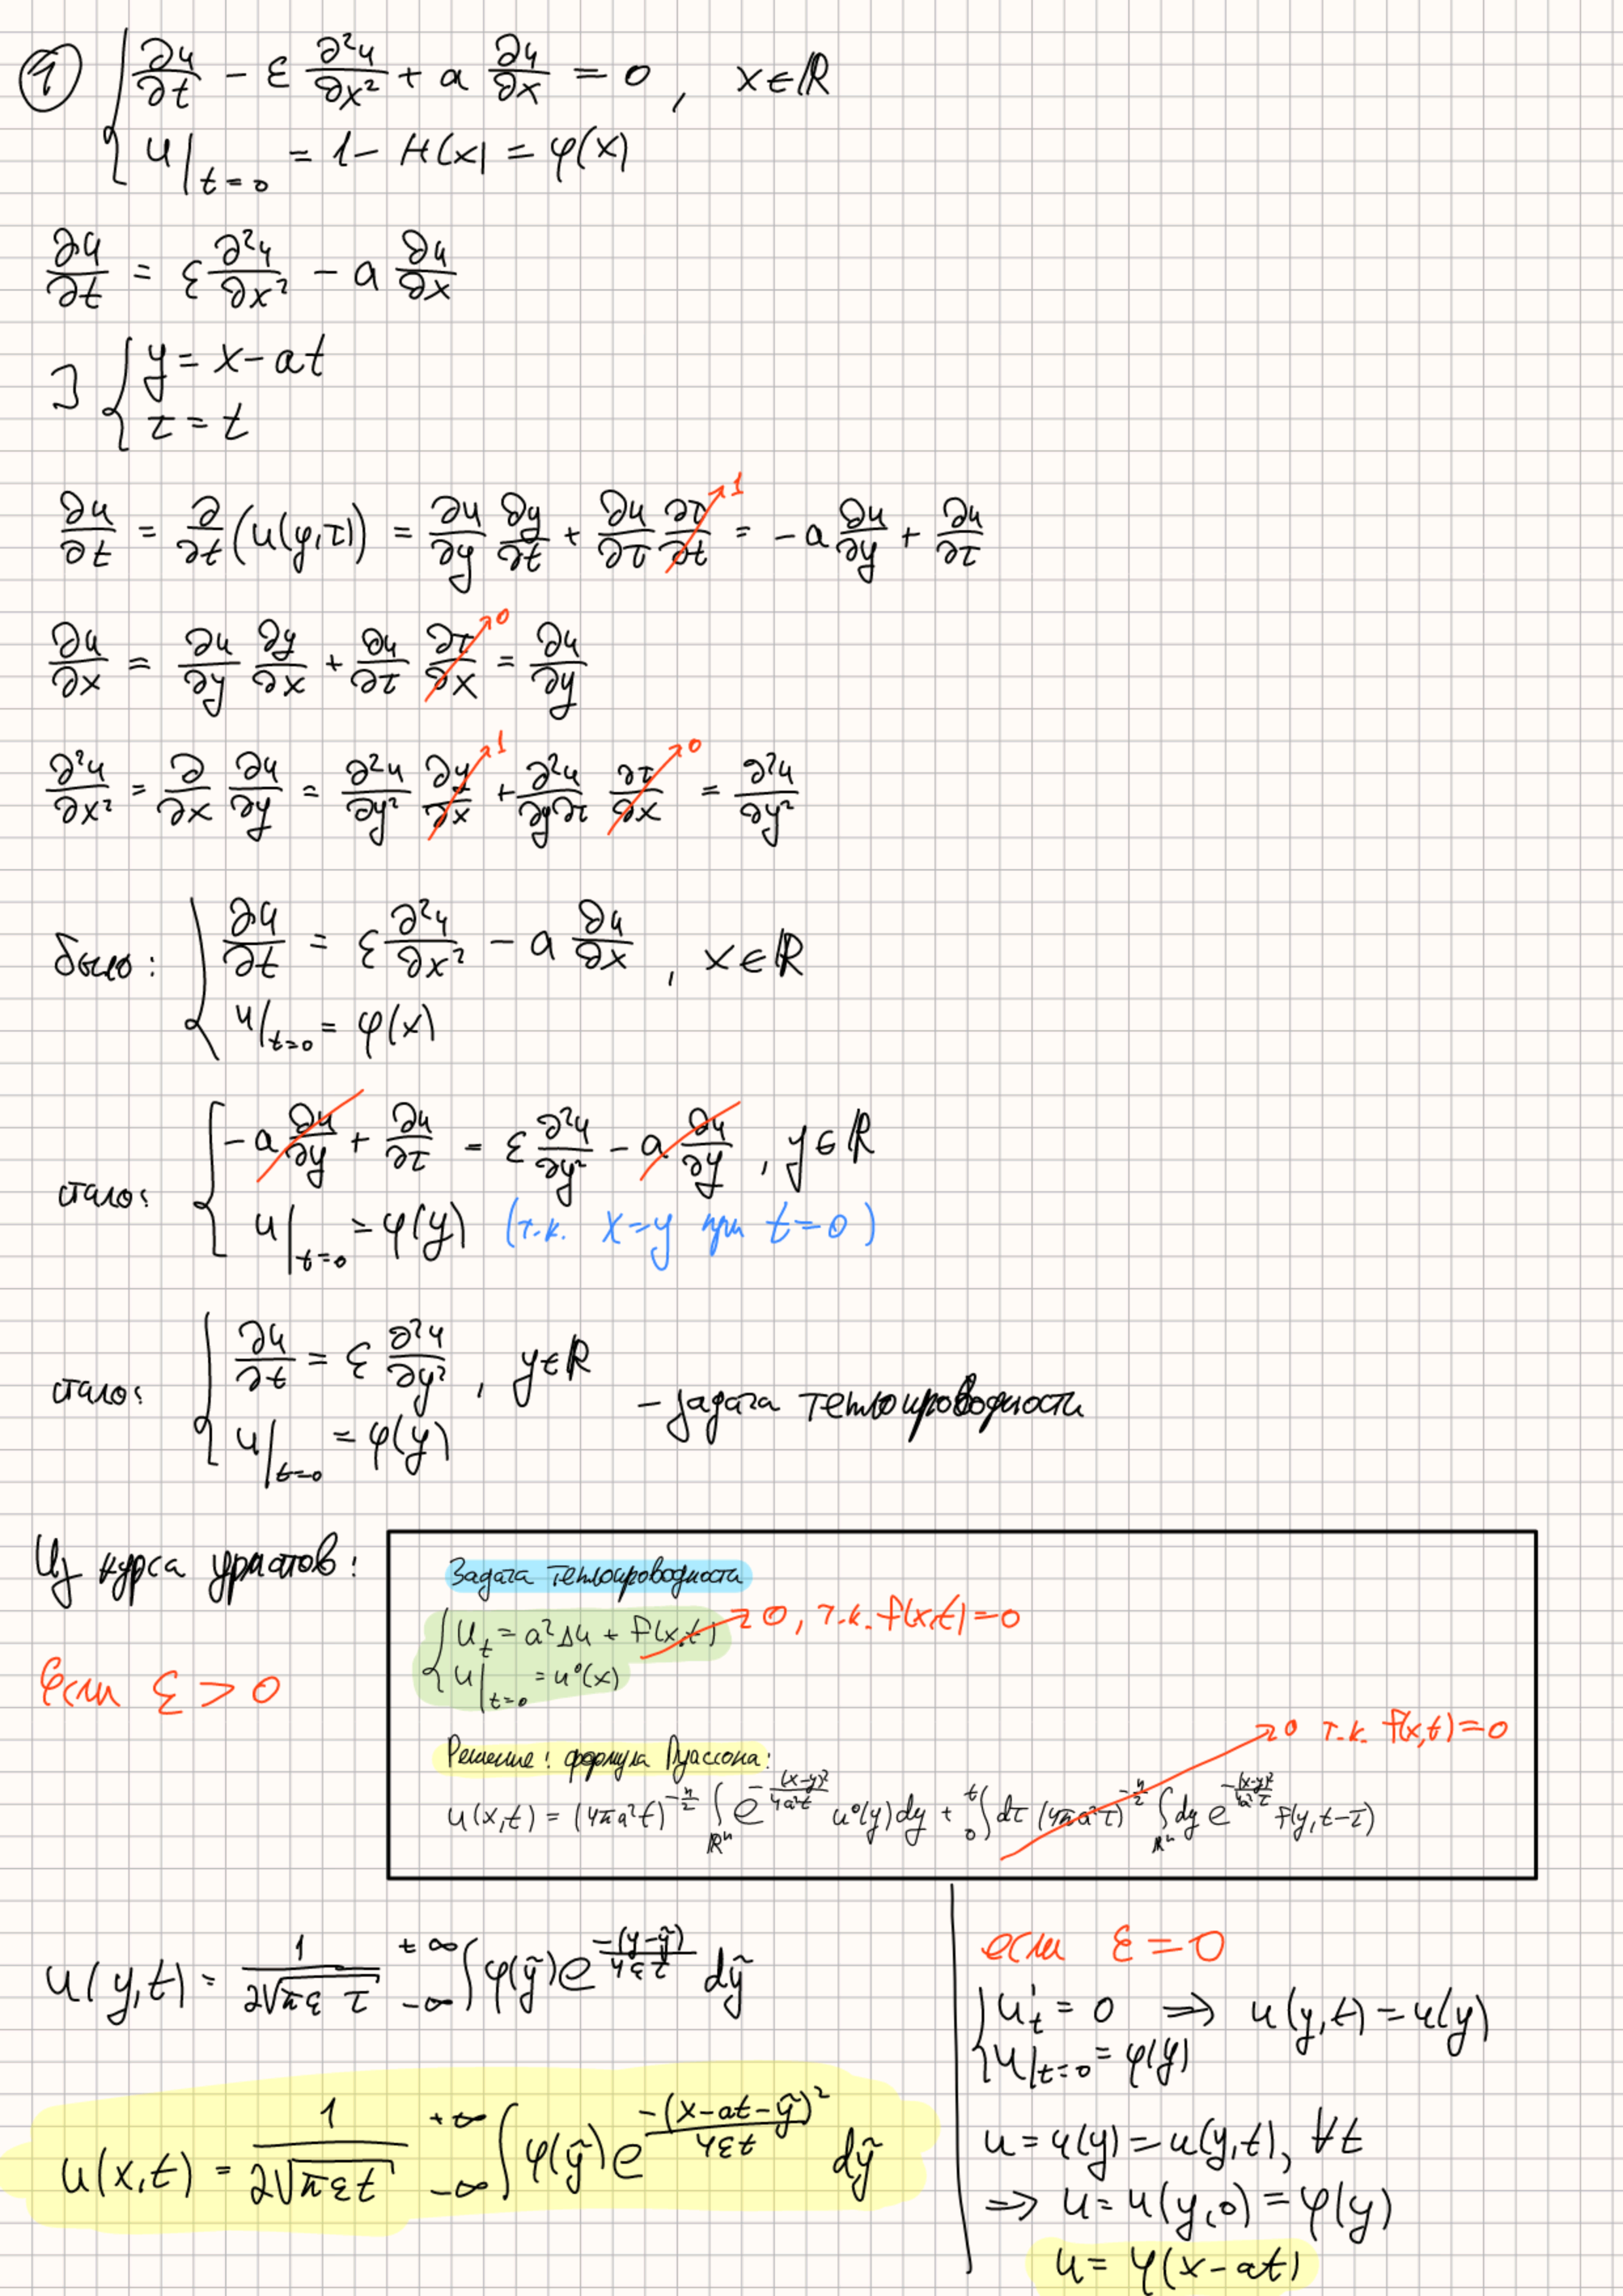 ① { ∂u/∂t − ε ∂²u/∂x² + a ∂u/∂x = 0, x∈ℝ
u|t=0 = 1 − H(x) = φ(x)
∂u/∂t = ε ∂²u/∂x² − a ∂u/∂x
] { y = x − at
τ = t
∂u/∂t = ∂/∂t (u(y,τ)) = ∂u/∂y ∂y/∂t + ∂u/∂τ ∂τ/∂t →1 = −a ∂u/∂y + ∂u/∂τ
∂u/∂x = ∂u/∂y ∂y/∂x + ∂u/∂τ ∂τ/∂x →0 = ∂u/∂y
∂²u/∂x² = ∂/∂x ∂u/∂y = ∂²u/∂y² ∂y/∂x →1 + ∂²u/∂y∂τ ∂τ/∂x →0 = ∂²u/∂y²
было: { ∂u/∂t = ε ∂²u/∂x² − a ∂u/∂x, x∈ℝ
u|t=0 = φ(x)
стало: { −a ∂u/∂y + ∂u/∂τ = ε ∂²u/∂y² − a ∂u/∂y, y∈ℝ
u|t=0 = φ(y) (т.к. x=y при t=0)
стало: { ∂u/∂t = ε ∂²u/∂y², y∈ℝ
u|t=0 = φ(y) – задача теплопроводности
Из курса урматов:
Задача теплопроводности
{ uₜ = a²Δu + f(x,t) → 0, т.к. f(x,t)=0
u|t=0 = u⁰(x)
Если ε > 0
Решение: формула Пуассона:
u(x,t) = (4πa²t)^(−n/2) ∫ℝⁿ e^(−(x−y)²/4a²t) u⁰(y)dy + ₀∫ᵗ dτ (4πa²τ)^(−n/2) ∫ℝⁿ dy e^(−(x−y)²/4a²τ) f(y,t−τ) → 0 т.к. f(x,t)=0
u(y,t) = 1/(2√(πε τ)) −∞∫+∞ φ(ỹ)e^(−(y−ỹ)/4ετ) dỹ
u(x,t) = 1/(2√(πεt)) −∞∫+∞ φ(ỹ)e^(−(x−at−ỹ)²/4εt) dỹ
если ε=0
{ u'ₜ = 0 ⇒ u(y,t) = u(y)
u|t=0 = φ(y)
u = u(y) = u(y,t), ∀t
⇒ u = u(y,0) = φ(y)
u = φ(x−at)